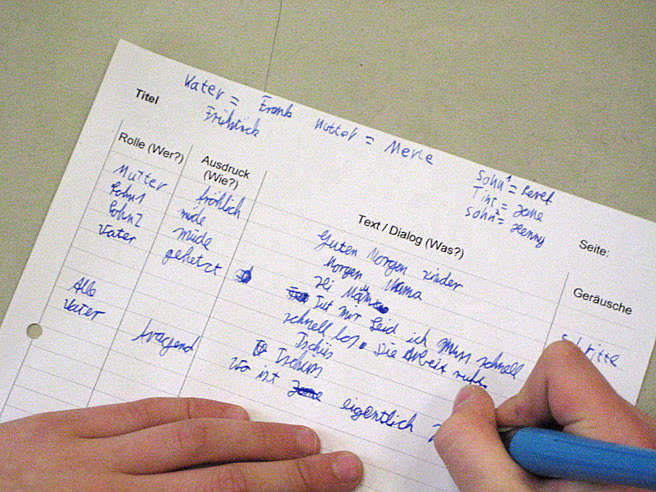 Titel
Vater = Frank Mutter = Merle
Frühstück
Sohn 1 = Peret
Tini = Jane
Sohn 2 = Henny
Rolle (Wer?) Ausdruck (Wie?) Text / Dialog (Was?) Seite:
Geräusche
Mutter fröhlich Guten Morgen Kinder
Sohn 1 müde Morgen Mama
Sohn 2 müde Hi
Vater gehetzt Tut mir Leid ich muss schnell
schnell los. Die Arbeit ruft Schritte
Alle Tschüs
Vater Tschüss
fragend Wo ist eigentlich